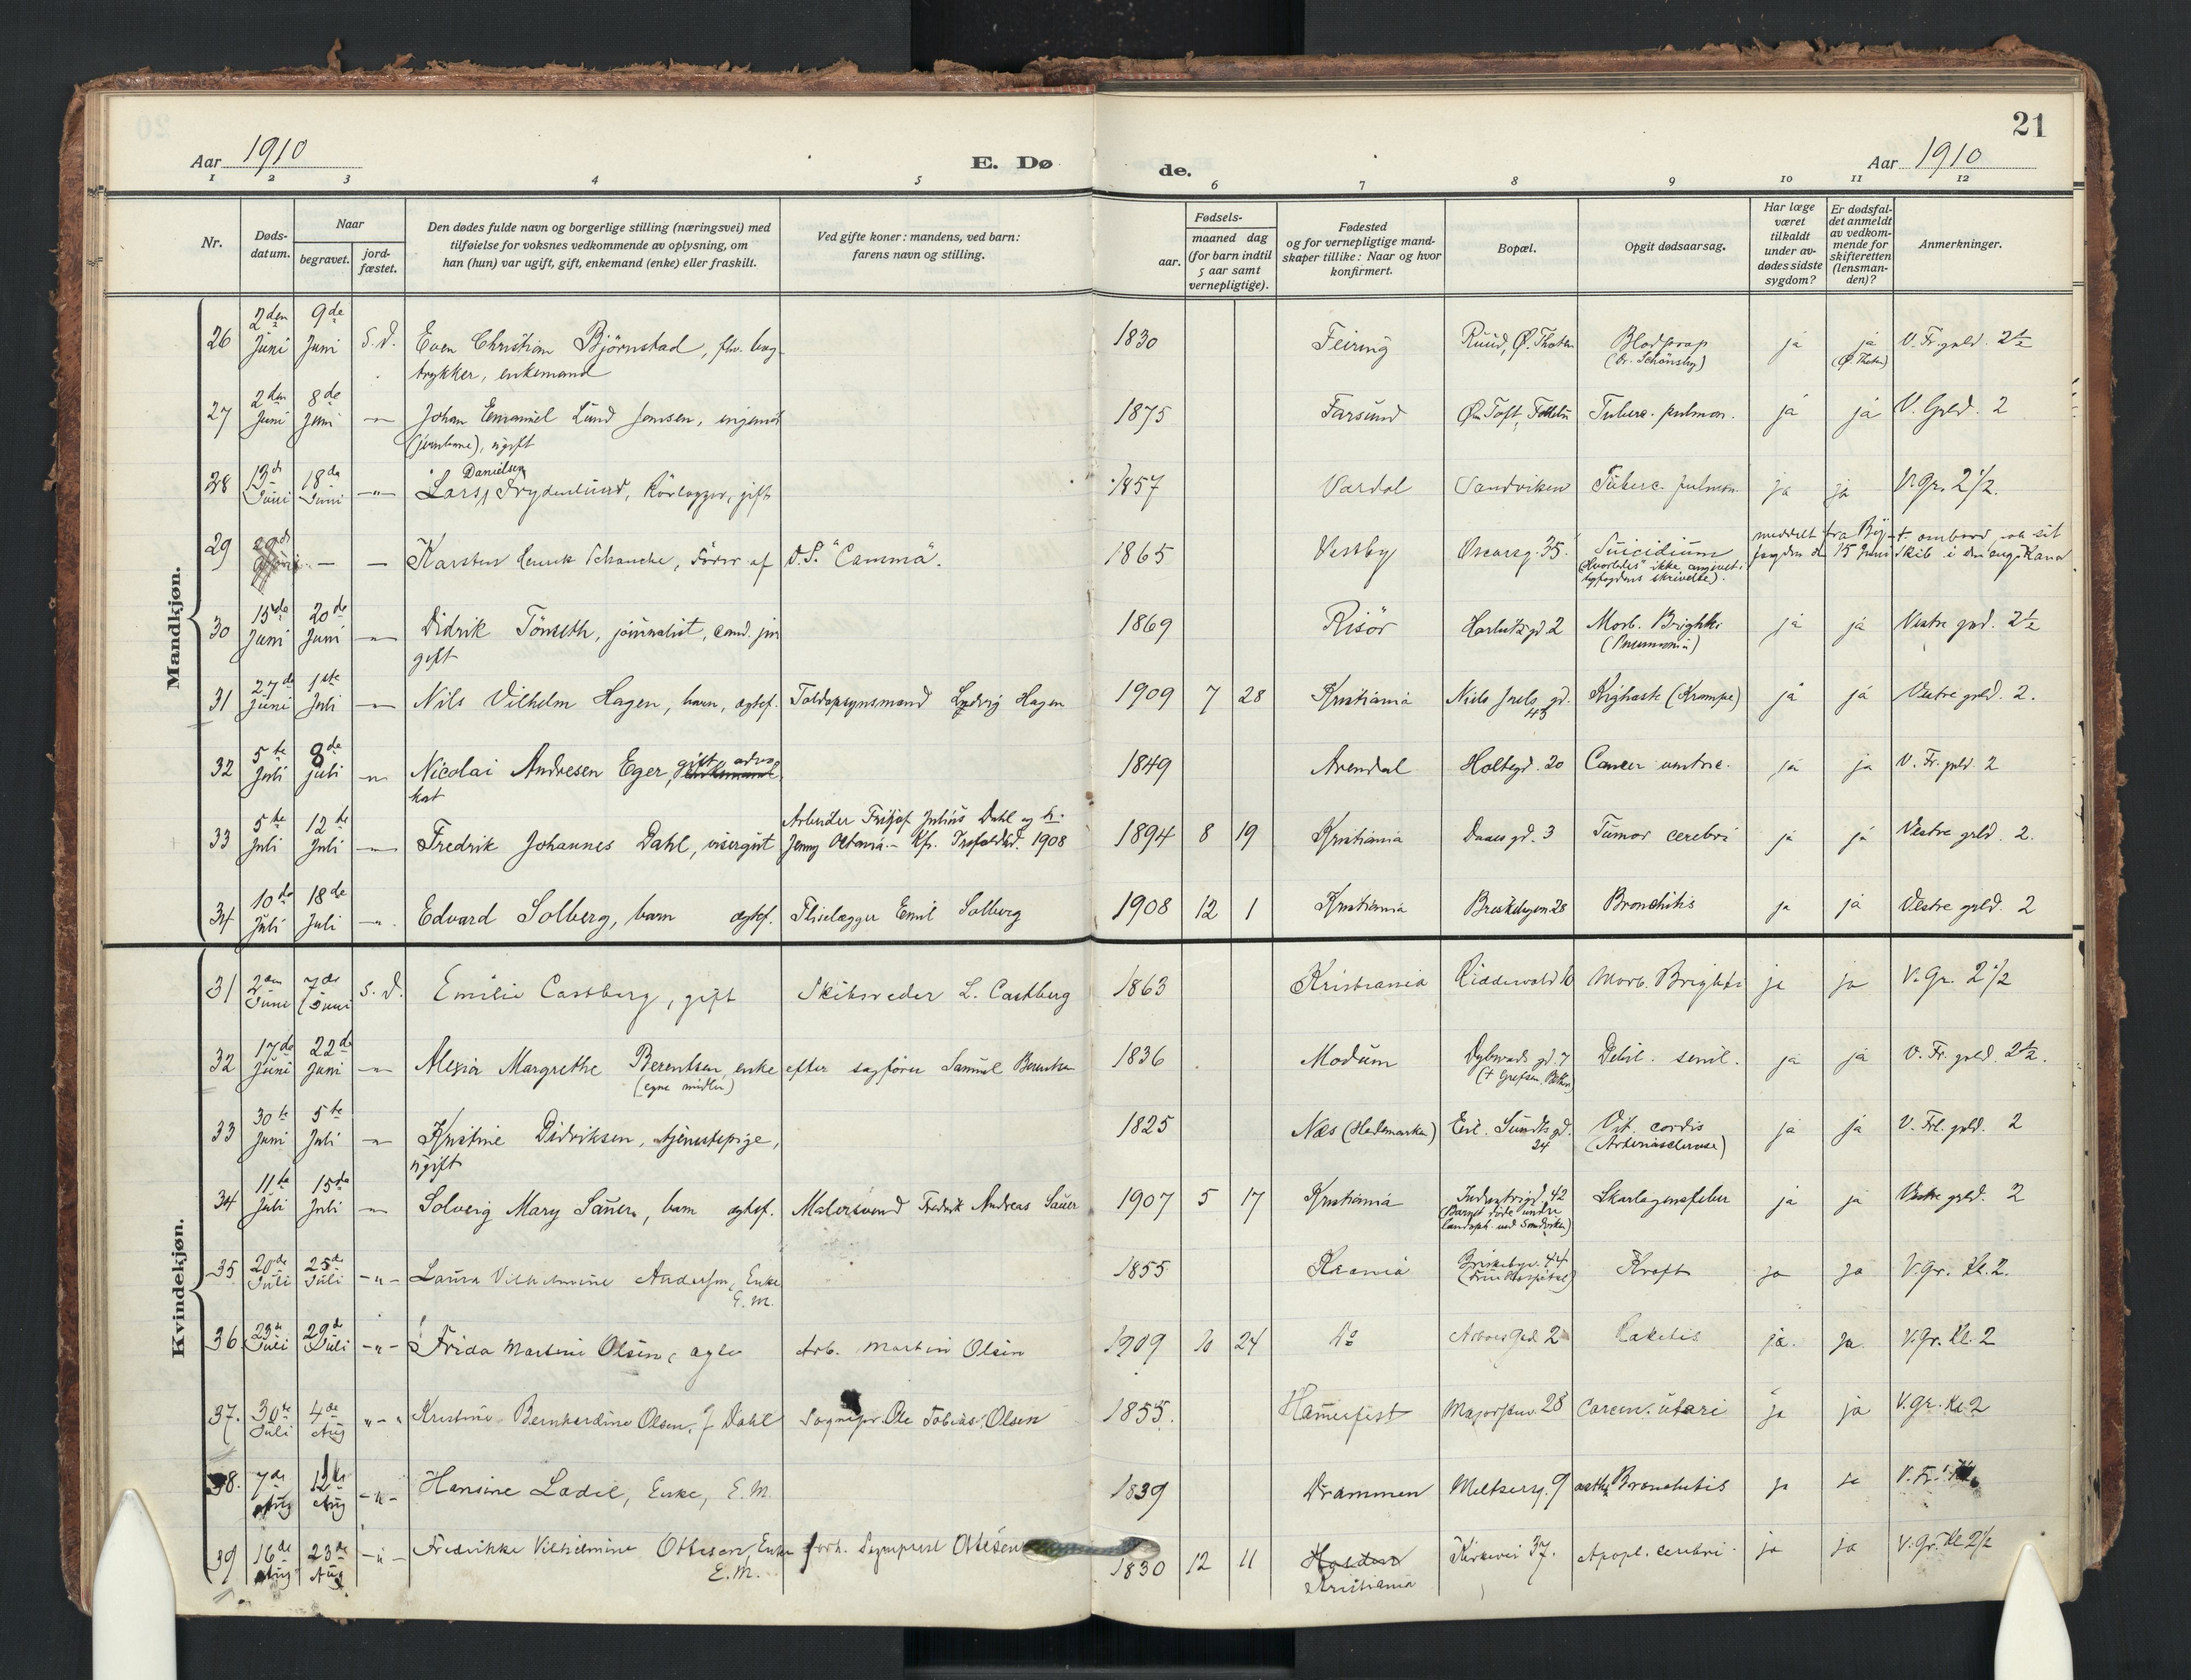 21
Aar 1910
E. Dø
de.
Aar 1910
1 2 3 4 5 6 7 8 9 10 11 12
Nr.
Døds-
datum.
Naar
begravet.
jord-
fæstet.
Den dødes fulde navn og borgerlige stilling (næringsvei) med
tilføielse for voksnes vedkommende av oplysning, om
han (hun) var ugift, gift, enkemand (enke) eller fraskilt.
Ved gifte koner: mandens, ved barn:
farens navn og stilling.
Fødsels-
aar.
maaned dag
(for barn indtil
5 aar samt
vernepligtige).
Fødested
og for vernepligtige mand-
skaper tillike: Naar og hvor
konfirmert.
Bopæl.
Opgit dødsaarsag.
Har læge
været
tilkaldt
under av-
dødes sidste
sygdom?
Er dødsfal-
det anmeldt
av vedkom-
mende for
skifteretten
(lensman-
den)?
Anmerkninger.
Mandkjøn.
26 2den Juni 9de Juni S.D. Even Christian Bjørnstad, fhv. bog- 1830 Feiring Ruud, Ø. Thoten Blodprop ja ja V. Fr. grld. 2 1/2
trykker, enkemand (Ø. Thoten)
27 2den Juni 8de Juni —"— Johan Emanuel Lund Jensen, ingeniør 1875 Farsund Tuberc. pulmon. ja ja V. Grld. 2
(jernbane), ugift
28 13de Juni 18de Juni —"— Lars Danielsen Frydenlund, gift 1857 Vardal Sandviken Tuberc. pulmon. ja ja V.gr. 2 1/2.
29 — — Karsten Henrik Schanche, Fører af D.S. "Camma". 1865 Vestby Oscarsg. 35. Suicidium meddelt fra
("Hvorledes" ikke angivet i skrivelse). 15 Juni Skib i
30 15de Juni 20de Juni —"— Didrik Tønseth, journalist, cand. jur 1869 Risör 2 Morb. Brightii ja ja Vestre grd. 2 1/2
gift (Pneumonia)
31 27de Juni 1ste Juli —"— Nils Vilhelm Hagen, barn, egtef. Toldopsynsmand Ludvig Hagen 1909 7 28 Kristiania Niels Juels gd. 45 Kighoste (Krampe) ja ja Vestre grld. 2.
32 5te Juli 8de juli —"— Nicolai Andresen Eger, gift, advo- 1849 Arendal Holtegd. 20 Cancer ventric. ja ja V. Fr. grld. 2
kat
33 5te Juli 12te Juli —"— Fredrik Johannes Dahl, visergut Arbeider Fritjof Julius Dahl og h. 1894 8 19 Kristiania Daaes gd. 3 Tumor cerebri ja ja Vestre grld. 2.
Jenny Oktavia 1908
34 10de Juli 18de Juli —"— Edvard Solberg, barn egtef. Fliselægger Emil Solberg 1908 12 1 Kristiania Briskebyen 28 Bronchitis ja ja Vestre grld. 2
Kvindekjøn.
31 2den Juni 7de Juni S. D. Emilie Castberg, gift Skibsreder L. Castberg 1863 Kristiania Morb. Brighti ja ja V. Gr. 2 1/2
32 17de Juni 22de Juni —"— Alexia Margrethe Berentsen, enke efter sagfører Samuel Berentsen 1836 Modum Dybwads gd. 7 Debil. senil. ja ja V. Fr. grld. 2 1/2.
(egne midler)
33 30te Juni 5te Juli —"— Kristine Didriksen, tjenestepige, 1825 Næs (Hedemarken) Eil. Sundts gd. 24 Vit. cordis ja ja V. Frl. grld. 2
ugift (Arteriosclerose)
34 11te Juli 15de Juli —"— Solveig Mary Sauer, barn egtef. Malersvend Fredrik Andreas Sauer 1907 5 17 Kristiania Industrigd. 42 Skarlagensfeber ja ja Vestre grld. 2
(Barnet døde under landoph. ved Sandviken)
35 20de Juli 25de Juli —"— Laura Vilhelmine Andersen, Enke 1855 Kr.ania Briskebyv. 44 Kræft ja ja V. Gr. Kl. 2.
E. M.
36 23de Juli 29de Juli —"— Frida Martine Olsen, ægte Arb. Martin Olsen 1909 10 24 Do 2 Rakitis ja. ja. V. Gr. Kl. 2
37. 30te Juli 4de Aug "—" Kristine Bernhardine Olsen, f Dahl Ole Tobias Olsen 1855. Hamerfest Majorstuv. 28 Carcin. uteri ja ja V. Gr. Kl. 2
38. 7de Aug 12te Aug —"— Hansine Ladel, Enke, E. M. 1839 Drammen Meltzersg. 9 Bronchitis ja ja V. Fr.
39 16de Aug 23de Aug —"— Fredrikke Vilhelmine Ottesen Enke Sogneprest Ottesen 1830 12 11 Kirkevei 37. Apopl. cerebri ja ja V. Gr. Kl 2 1/2
E. M. Kristiania